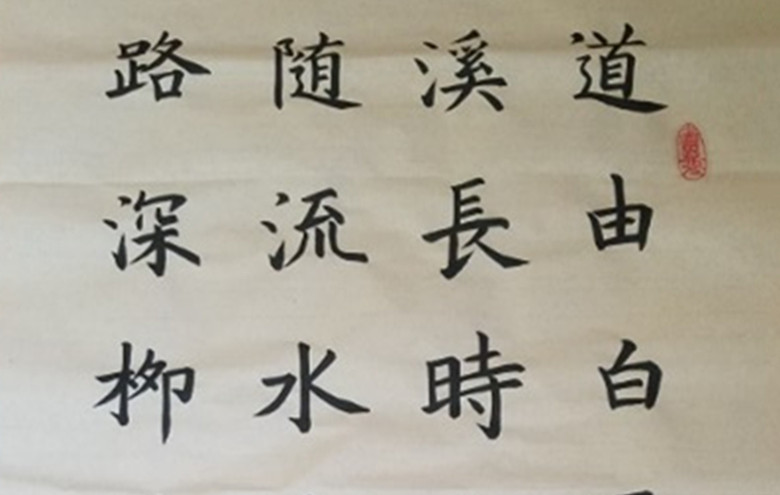 道由白
溪長時
随流水
路深柳